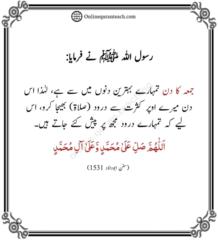 Onlinequranteach.com
رسول اللہ ﷺ نے فرمایا:
جمعہ کا دن تمہارے بہترین دنوں میں سے ہے، لہٰذا اس
دن میرے اوپر کثرت سے درود (صلاۃ) بھیجا کرو، اس
لیے کہ تمہارے درود مجھ پر پیش کئے جاتے ہیں۔
اَللّٰهُمَّ صَلِّ عَلٰى مُحَمَّدٍ وَّعَلٰى آلِ مُحَمَّدٍ
(سنن ابوداؤد: 1531)